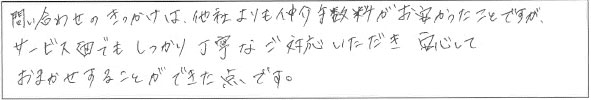 問い合わせのきっかけは、他社よりも仲介手数料がお安かったことですが、
サービス面でもしっかり丁寧なご対応いただき安心して
おまかせすることができた点、です。